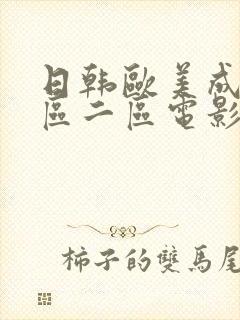 日韩歐美成
區二區電影
柿子的雙馬尾